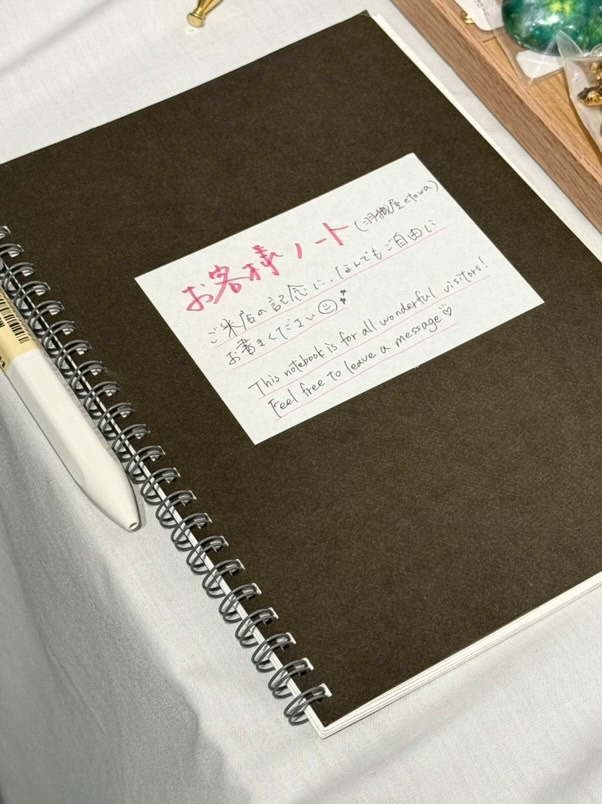 お客様ノート (羽織屋etowa)
ご来店の記念に、なんでもご自由に
お書きください
This notebook is for all wonderful visitors!
Feel free to leave a message♡